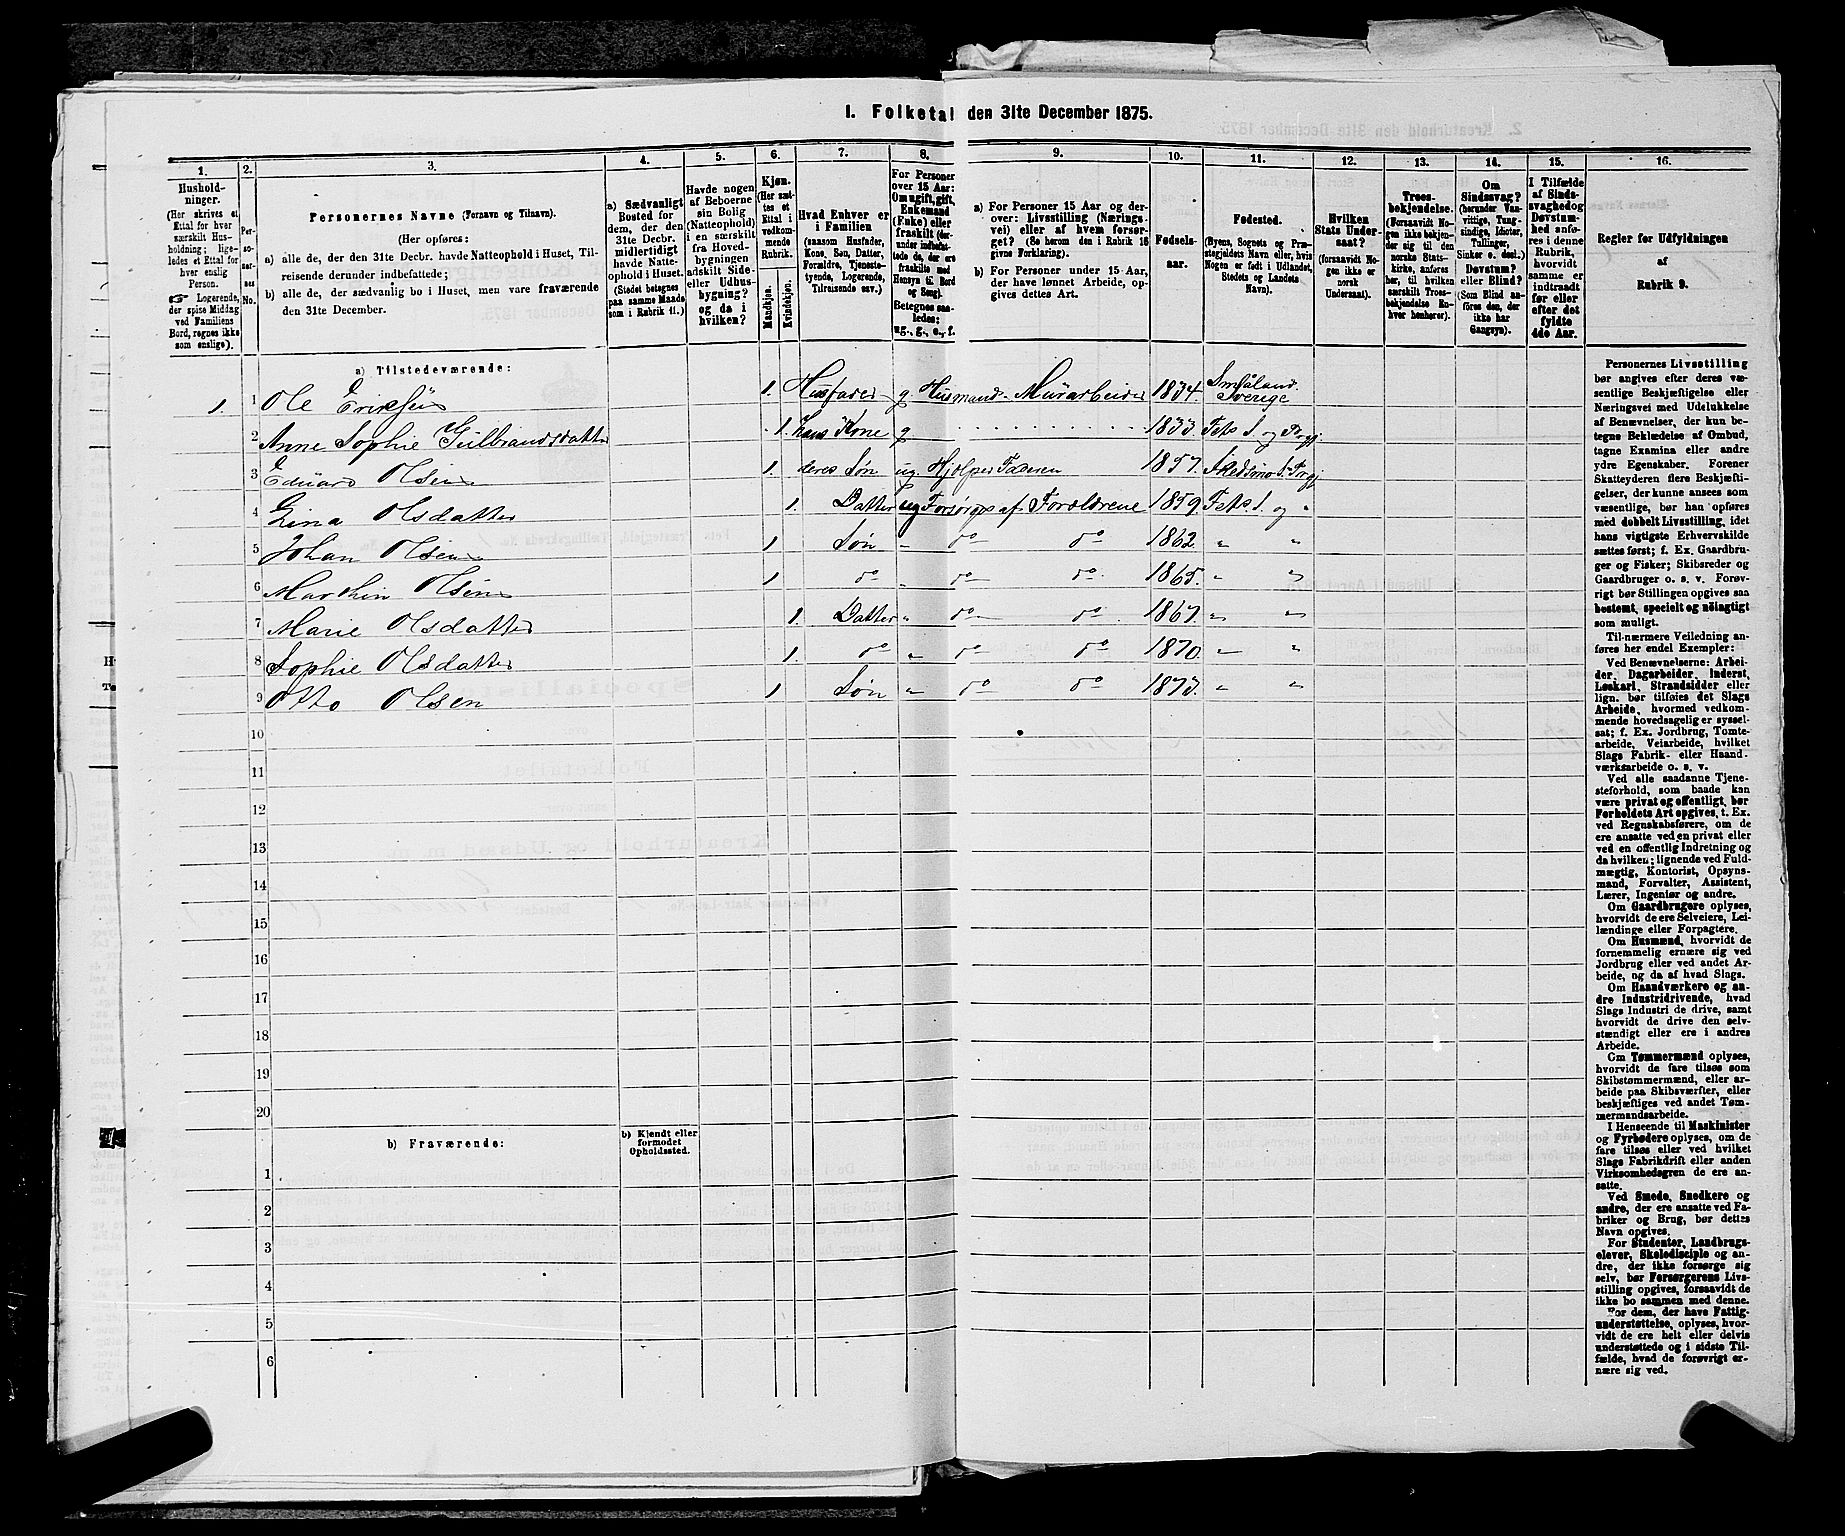 1. Folketal den 31te December 1875.
1. 2. 3. 4. 5. 6. 7. 8. 9. 10. 11. 12. 13. 14. 15. 16.
Hushold-
ninger.
(Her skrives et
Ettal for hver
særskilt Hus-
holdning; lige-
ledes et Ettal for
hver enslig
Person.
☞ Logerende,
der spise Middag
ved Familiens
Bord, regnes ikke
som enslige).
Per-
so-
ner-
nes
No.
Personernes Navne (Fornavn og Tilnavn).
(Her opføres:
a) alle de, der den 31te Decbr. havde Natteophold i Huset, Til-
reisende derunder indbefattede;
b) alle de, der sædvanlig bo i Huset, men vare fraværende
den 31te December.
a) Sædvanligt
Bosted for
dem, der den
31te Decbr.
midlertidigt
havde Natte-
ophold i Huset.
(Stedet betegnes
paa samme Maade
som i Rubrik 11.)
Havde nogen
af Beboerne
sin Bolig
(Natteophold)
i en særskilt
fra Hoved-
bygningen
adskilt Side-
eller Udhus-
bygning?
og da i
hvilken?
Kjøn.
(Her sæt-
tes et
Ettal i
vedkom-
mende
Rubrik.
Mandkjøn.
Kvindekjøn.
Hvad Enhver er
i Familien
(saasom Husfader,
Kone, Søn, Datter,
Forældre, Tjeneste-
tyende, Logerende,
Tilreisende osv.)
For Personer
over 15 Aar:
Om ugift, gift,
Enkemand
(Enke) eller
fraskilt (der-
under indbefat-
tede de, der ere
fraskilte med
Hensyn til Bord
og Seng).
Betegnes saa-
ledes:
ug., g., e., f.
a) For Personer 15 Aar og der-
over: Livsstilling (Nærings-
vei) eller af hvem forsør-
get? (Se herom den i Rubrik 16
givne Forklaring).
b) For Personer under 15 Aar,
der have lønnet Arbeide, op-
gives dettes Art.
Fødsels-
aar.
Fødested.
(Byens, Sognets og Præ-
stegjeldets Navn eller, hvis
Nogen er født i Udlandet,
Stedets og Landets
Navn).
Hvilken
Stats Under-
saat?
(forsaavidt No-
gen ikke er
norsk
Undersaat).
Troes-
bekjendelse.
(Forsaavidt No-
gen ikke bekjen-
der sig til den
norske Stats-
kirke, anføres
her, til hvilken
særskilt Troes-
bekjendelse En-
hver henhører).
Om
Sindssvag?
(herunder Van-
vittige, Tung-
sindige, Idioter,
Tullinger,
Sinker o. desl.).
Døvstum?
eller Blind?
(Som Blind an-
føres den, der
ikke har
Gangsyn).
I Tilfælde
af Sinds-
svaghed og
Døvstum-
hed anfø-
res i denne
Rubrik,
hvorvidt
samme er
indtraadt
før eller
efter det
fyldte
4de Aar.
Regler før Udfyldningen
af
Rubrik 9.
a) Tilstedeværende:
1. 1 Ole Eriksen 1. Husfader g Husmand. Murarbeider 1834. Småland. Sverige
2 Anne Sophie Gulbrandsdatter 1. hans Kone g 1833. Fets S. og Prgj
3 Eduard Olsen 1. deres Søn ug. Hjælper Faderen 1857. Skedsmo S. Prgj
4 Lina Olsdatter 1. Datter ug Forsørges af Forældrene 1859. Fets. S. og "
5 Johan Olsen 1 Søn " do do 1862. " "
6 Marthin Olsen 1 do " do do. 1865. " "
7 Marie Olsdatter 1. Datter " do do. 1867. " "
8 Sophie Olsdatter 1. do " do do 1870. " "
9 Otto Olsen 1 Søn " do do 1873. " "
10
11
12
13
14
15
16
17
18
19
20
b) Fraværende:
b) Kjendt eller
formodet
Opholdssted.
1
2
3
4
5
6
Personernes Livsstilling
bør angives efter deres væ-
sentlige Beskjæftigelse eller
Næringsvei med Udelukkelse
af Benævnelser, der kun be-
tegne Beklædelse af Ombud,
tagne Examina eller andre
ydre Egenskaber. Forener
Skatteyderen flere Beskjæfti-
gelser, der kunne ansees som
væsentlige, bør han opføres
med dobbelt Livsstilling, idet
hans vigtigste Erhvervskilde
sættes først; f. Ex. Gaardbru-
ger og Fisker; Skibsreder og
Gaardbruger o. s. v. Forøv-
rigt bør Stillingen opgives saa
bestemt, specielt og nøiagtigt
som muligt.
Til nærmere Veiledning an-
føres her endel Exempler:
Ved Benævnelserne: Arbei-
der, Dagarbeider, Inderst,
Løskarl, Strandsidder eller
lign. bør tilføies det Slags
Arbeide, hvormed vedkom-
mende hovedsagelig er syssel-
sat; f. Ex. Jordbrug, Tomte-
arbeide, Veiarbeide, hvilket
Slags Fabrik- eller Haand-
værksarbeide o. s. v.
Ved alle saadanne Tjene-
steforhold, som baade kan
være privat og offentligt, bør
Forholdets Art opgives, t. Ex.
ved Regnskabsførere, om de
ere ansatte ved en privat eller
ved en offentlig Indretning og
da hvilken; lignende ved Fuld-
mægtig, Kontorist, Opsyns-
mand, Forvalter, Assistent,
Lærer, Ingeniør og andre.
Om Gaardbrugere oplyses,
hvorvidt de ere Selveiere, Lei-
lændinge eller Forpagtere.
Om Husmænd, hvorvidt de
fornemmelig ernære sig ved
Jordbrug eller ved andet Ar-
beide, og da af hvad Slags.
Om Haandværkere og an-
dre Industridrivende, hvad
Slags Industri de drive, samt
hvorvidt de drive den selv-
stændigt eller ere i andres
Arbeide.
Om Tømmermænd oplyses,
hvorvidt de fare tilsøs som
Skibstømmermænd, eller ar-
beide paa Skibsværfter, eller
beskjæftiges ved andet Tøm-
mermandsarbeide.
I Henseende til Maskinister
og Fyrbødere oplyses, om de
fare tilsøs eller ved hvilket
Slags Fabrikdrift eller anden
Virksomhedsgren de ere an-
satte.
Ved Smede, Snedkere og
andre, der ere ansatte ved Fa-
briker og Brug, bør dettes
Navn opgives.
For Studenter, Landbrugs-
elever, Skoledisciple og an-
dre, der ikke forsørge sig
selv, bør Forsørgerens Livs-
stilling opgives, forsaavidt de
ikke bo sammen med denne.
For dem, der have Fattig-
understøttelse, oplyses, hvor-
vidt de ere helt eller delvis
understøttede og i sidste Til-
fælde, hvad de forøvrigt er-
nære sig ved.